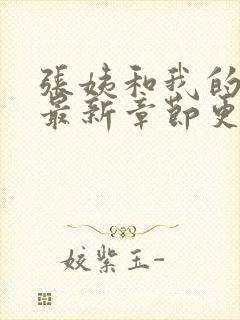 張姨和我的
最新章節更
姣紫玉-